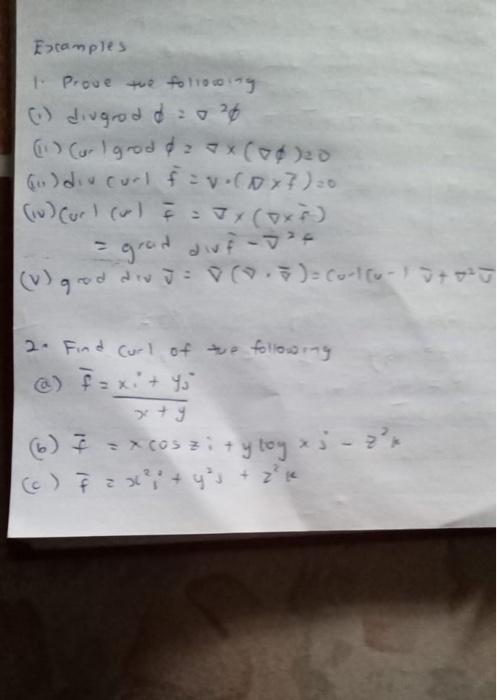 Examples
1. Prove the following
(i) divgrad ϕ = ∇²ϕ
(ii) Curl grad ϕ = ∇×(∇ϕ)=0
(iii) div curl f̄ = ∇·(∇×f̄)=0
(iv) Curl curl f̄ = ∇×(∇×f̄)
= grad div f̄ - ∇²f
(v) grad div v̄ = ∇(∇·v̄)=Curl Curl v̄ + ∇²v̄
2. Find Curl of the following
(a) f̄ = xi + yj
x + y
(b) f̄ = x cos z i + y log x j - z²k
(c) f̄ = x²i + y²j + z²k